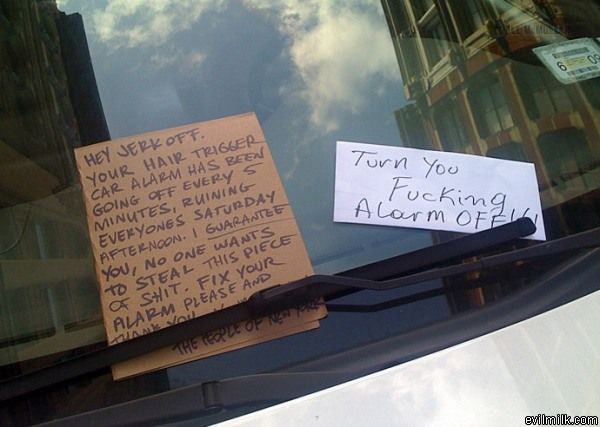 HEY JERK OFF.
YOUR HAIR TRIGGER
CAR ALARM HAS BEEN
GOING OFF EVERY 5
MINUTES, RUINING
EVERYONES SATURDAY
AFTERNOON. I GUARANTEE
YOU, NO ONE WANTS
TO STEAL THIS PIECE
OF SHIT. FIX YOUR
ALARM PLEASE AND
THANK YOU
THE PEOPLE OF NEW
Turn You
Fucking
Alarm OFF!!!
evilmilk.com